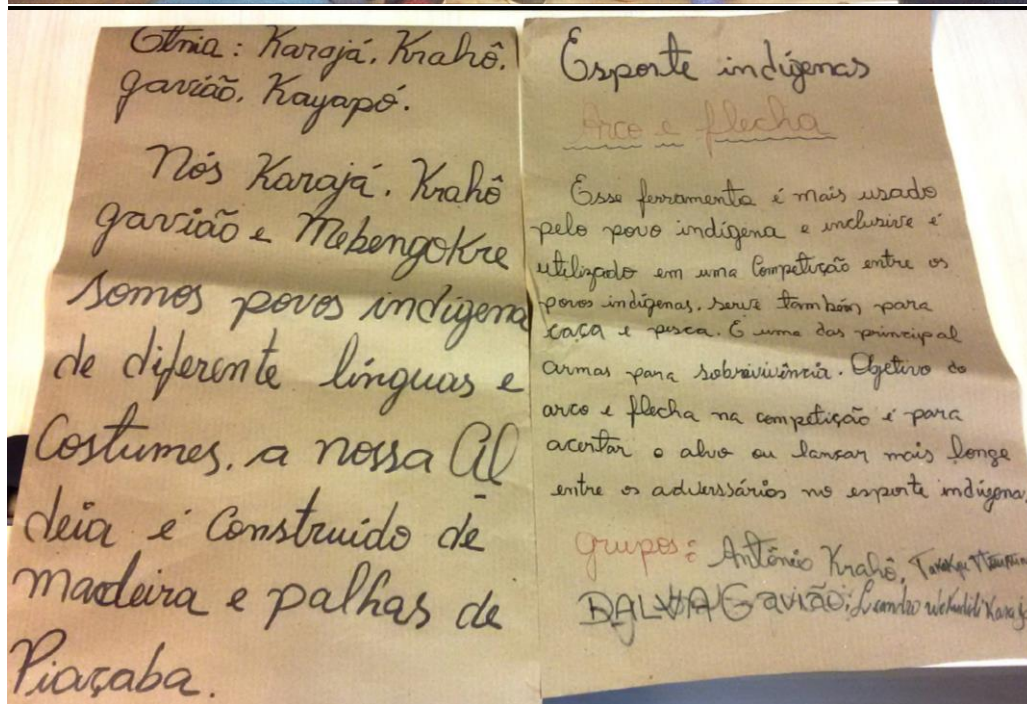 Etnia: Karajá, Krahô,
gavião, Kayapó.
Nós Karajá, Krahô
gavião e Mebengokre
somos povos indígena
de diferente línguas e
Costumes, a nossa Al
deia é Construído de
madeira e palhas de
Piaçaba.
Esporte indígenas
Arco e flecha
Esse ferramenta é mais usado
pelo povo indígena e inclusive é
utilizado em uma Competição entre os
povos indígenas, serve também para
caça e pesca. É uma das principal
armas para sobrivivência. Ogetivo do
arco e flecha na competição é para
acertar o alvo ou lançar mais longe
entre os adverssários no esporte indígena.
grupos: Antônio Krahô,
Gavião; Leandro Karajá